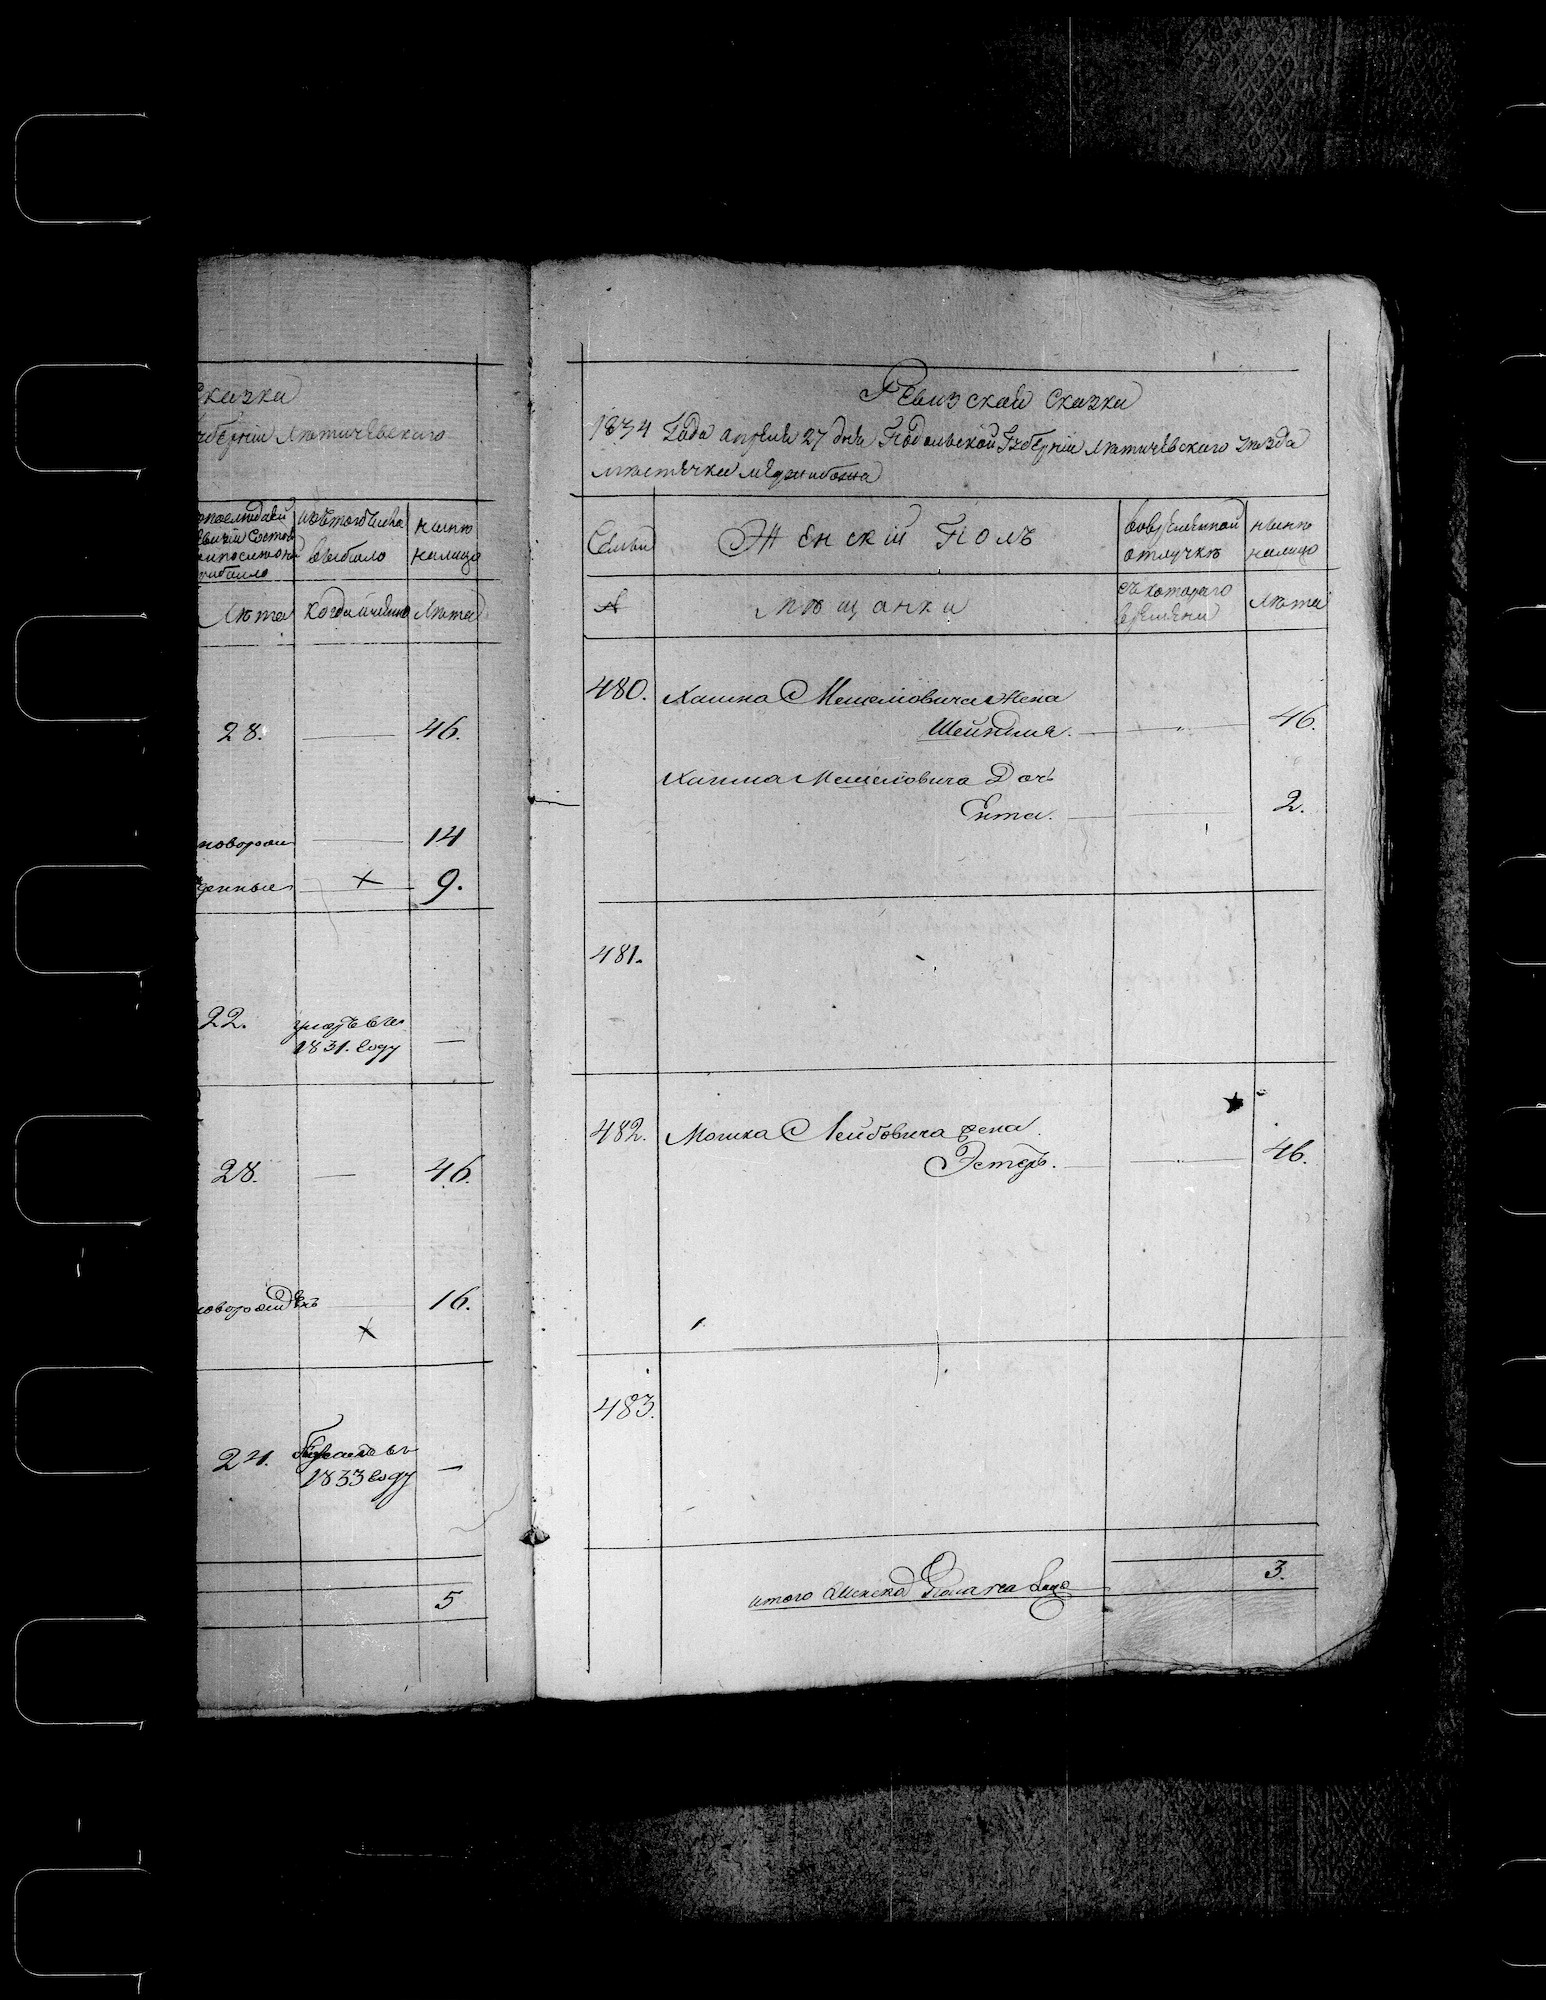 Сказка
губерніи Летичевскаго
изътого числа
выбыло
ныне
налицо
Лета
Когда имянно
Лета
28.
46.
новорож
14
денные
9.
22.
умеръ въ
1831. году
28.
46.
новорожденъ
16.
24.
въ
1833 году
5
Ревизская Сказка
1834 Года апреля 27 дня Подольской Губерніи Летичевскаго уезда
местечка меджибожа
Семьи
Женскій Полъ
вовременной
отлучке
ныне
налицо
№
мещанки
съ котораго
времяни
Лета
480.
Хаима Мошковича Жена
Шейндля.
46.
Хаима Мошковича Дочь
Ента.
2.
481.
482.
Мошка Лейбовича жена
Эстеръ.
46.
483.
итого женска Пола на Лицо
3.